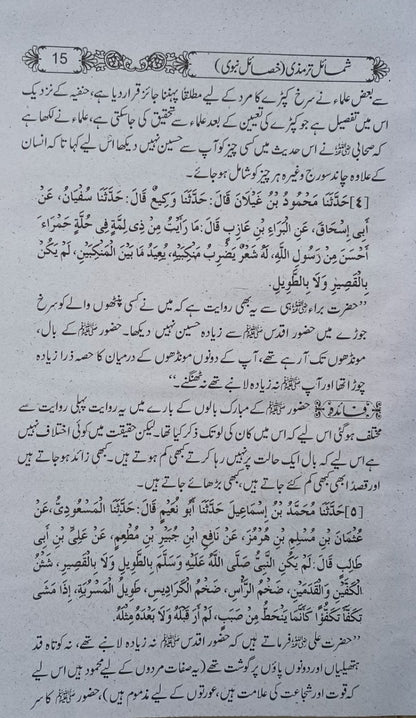 شمائل ترمذی (خصائل نبوی)
15
سے بعض علماء نے سرخ کپڑے کا مرد کے لیے مطلقا پہننا جائز قرار دیا ہے، حنفیہ کے نزدیک
اس میں تفصیل ہے جو کپڑے کی تعیین کے بعد علماء سے تحقیق کی جاسکتی ہے، علماء نے لکھا ہے
کہ صحابی ؓ نے اس حدیث میں کسی چیز کو آپ سے حسین نہیں دیکھا اس لیے کہا تا کہ انسان
کے علاوہ چاند سورج وغیرہ ہر چیز کو شامل ہو جائے۔
[٤] حَدَّثَنَا مَحْمُودُ بْنُ غَيْلَانَ قَالَ: حَدَّثَنَا وَكِيعٌ قَالَ: حَدَّثَنَا سُفْيَانُ، عَنْ
أَبِي إِسْحَاقَ، عَنِ الْبَرَاءِ بْنِ عَازِبٍ قَالَ: مَا رَأَيْتُ مِنْ ذِي لِمَّةٍ فِي حُلَّةٍ حَمْرَاءَ
أَحْسَنَ مِنْ رَسُولِ اللَّهِ، لَهُ شَعْرٌ يَضْرِبُ مَنْكِبَيْهِ، بُعَيْدُ مَا بَيْنَ الْمَنْكِبَيْنِ، لَمْ يَكُنْ
بِالْقَصِيرِ وَلَا بِالطَّوِيلِ.
’’حضرت براء ؓ ہی سے یہ بھی روایت ہے کہ میں نے کسی پٹھوں والے کو سرخ
جوڑے میں حضور اقدس ﷺ سے زیادہ حسین نہیں دیکھا۔ حضور ﷺ کے بال،
مونڈھوں تک آرہے تھے، آپ کے دونوں مونڈھوں کے درمیان کا حصہ ذرا زیادہ
چوڑا تھا اور آپ ﷺ نہ زیادہ لانبے تھے نہ ٹھگنے۔‘‘
فائدہ حضور ﷺ کے مبارک بالوں کے بارے میں یہ روایت پہلی روایت سے
مختلف ہوگئی اس لیے کہ اس میں کان کی لو تک ذکر کیا تھا۔ لیکن حقیقت میں کوئی اختلاف نہیں
ہے اس لیے کہ بال ایک حالت پر نہیں رہا کرتے کبھی کم ہوتے ہیں۔ کبھی زائد ہو جاتے ہیں
اور قصداً بھی کبھی کم کئے جاتے ہیں، کبھی بڑھائے جاتے ہیں۔
[٥] حَدَّثَنَا مُحَمَّدُ بْنُ إِسْمَاعِيلَ حَدَّثَنَا أَبُو نُعَيْمٍ قَالَ: حَدَّثَنَا الْمَسْعُودِيُّ، عَنْ
عُثْمَانَ بْنِ مُسْلِمِ بْنِ هُرْمُزَ، عَنْ نَافِعِ ابْنِ جُبَيْرِ بْنِ مُطْعِمٍ، عَنْ عَلِيِّ بْنِ أَبِي
طَالِبٍ قَالَ: لَمْ يَكُنِ النَّبِيُّ صَلَّى اللَّهُ عَلَيْهِ وَسَلَّمَ بِالطَّوِيلِ وَلَا بِالْقَصِيرِ، شَثْنُ
الْكَفَّيْنِ وَالْقَدَمَيْنِ، ضَخْمُ الرَّأْسِ، ضَخْمُ الْكَرَادِيسِ، طَوِيلُ الْمَسْرُبَةِ، إِذَا مَشَى
تَكَفَّأَ تَكَفُّؤًا كَأَنَّمَا يَنْحَطُّ مِنْ صَبَبٍ، لَمْ أَرَ قَبْلَهُ وَلَا بَعْدَهُ مِثْلَهُ.
’’حضرت علی ؓ فرماتے ہیں کہ حضور اقدس ﷺ نہ زیادہ لانبے تھے، نہ کوتاہ قد
ہتھیلیاں اور دونوں پاؤں پر گوشت تھے (یہ صفات مردوں کے لیے محمود ہیں اس لیے
کہ قوت اور شجاعت کی علامت ہیں، عورتوں کے لیے مذموم ہیں)، حضور ﷺ کا سر